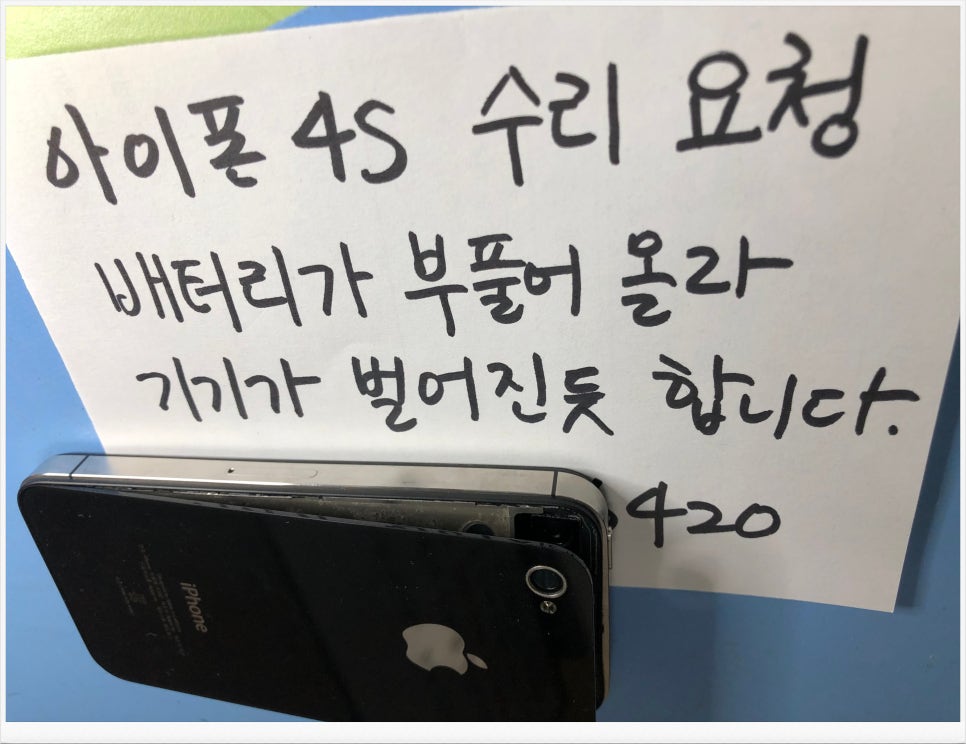 아이폰 4S 수리 요청
배터리가 부풀어 올라
기기가 벌어진듯 합니다.
420
iPhone